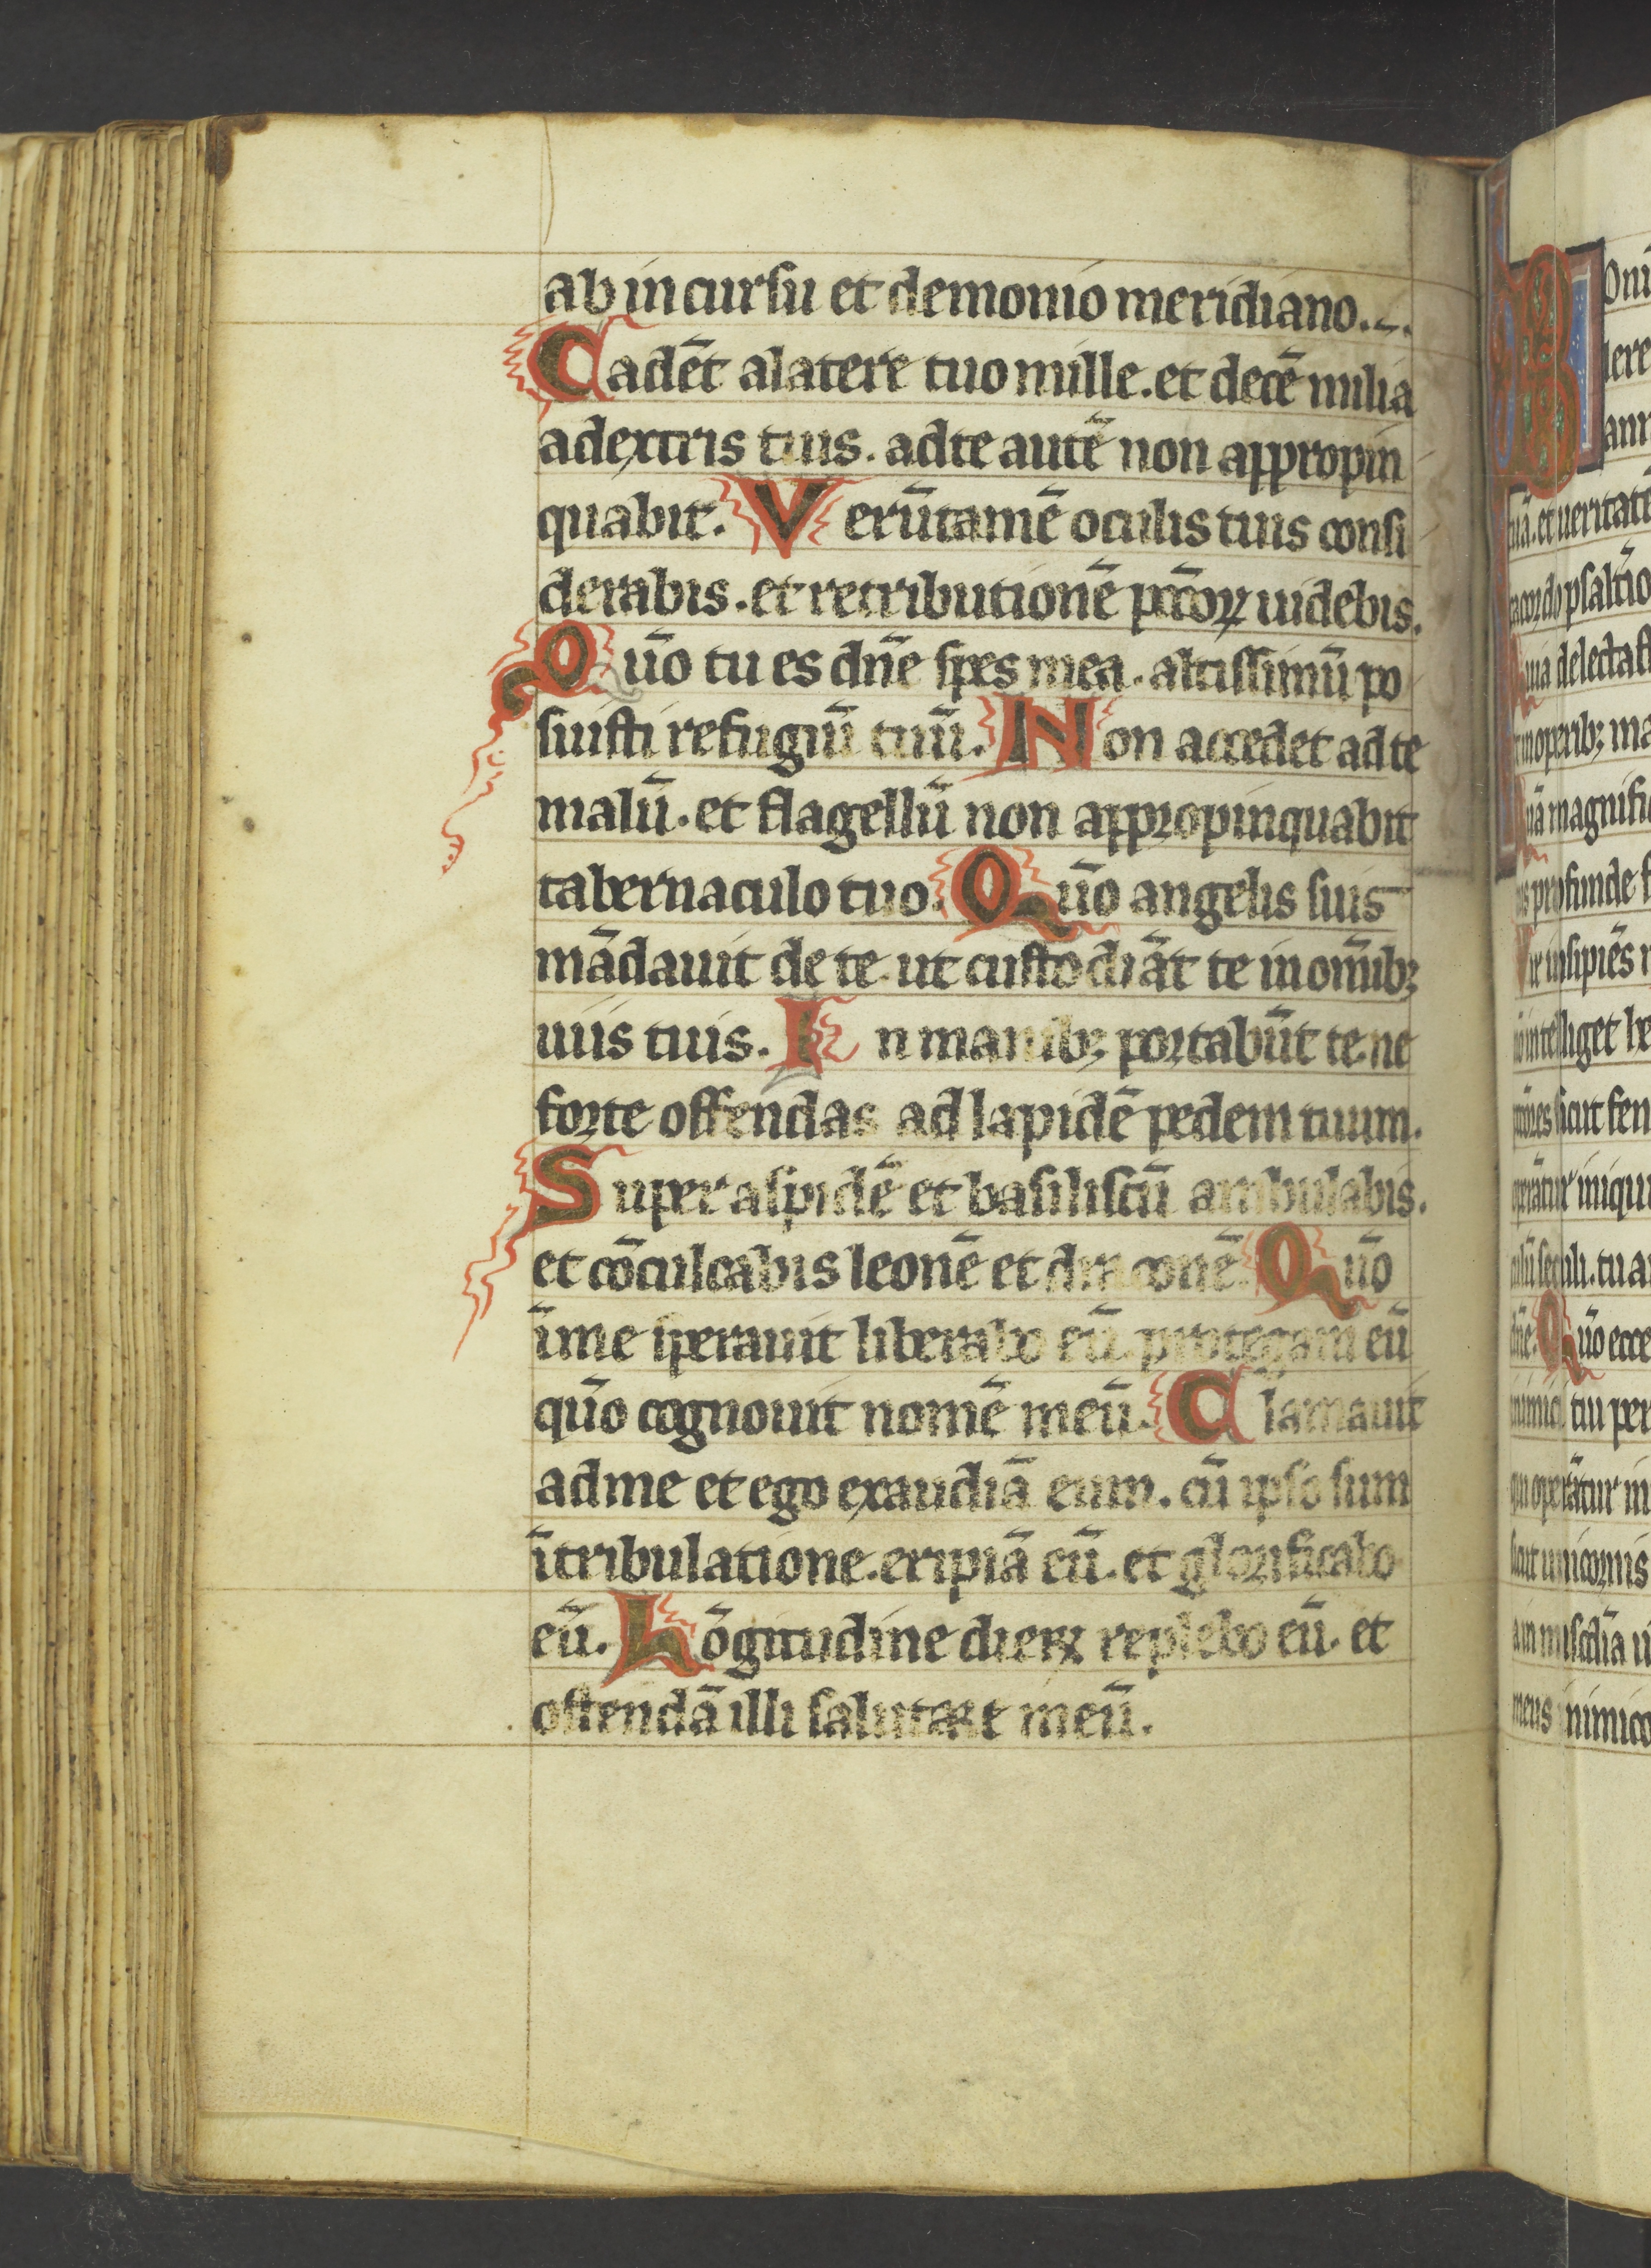 ab incursu et demonio meridiano.
Cadēt a latere tuo mille. et decē milia
a dextris tuis. ad te autē non appropin
quabit. Verūtamē oculis tuis consi
derabis. et retributionē pccōꝝ uidebis.
Quō tu es dn̄e spes mea. altissimū po
suisti refugiū tuū. Non accedet ad te
malū. et flagellū non appropinquabit
tabernaculo tuo. Quō angelis suis
mādauit de te. ut custodiāt te in om̄ib;
uiis tuis. In manib; portabūt te. ne
forte offendas ad lapidē pedem tuum.
Super aspidē et basiliscū ambulabis.
et cōculcabis leonē et draconē. Quō
ī me sperauit liberabo eū. protegam eū
quō cognouit nomē meū. Clamauit
ad me et ego exaudiā eum. cū ipso sum
ī tribulatione. eripiā eū. et glorificabo
eū. Lōgitudine dieꝝ replebo eū. et
ostendā illi salutare meū.
tuā. et ueritatē
psaltio
uia delectast
in operib; ma
uā magnifi
profunde
ir insipiēs
intelliget
sicut fen
iniqui
tu a
dn̄e. Quō ecce
inimici tui per
qui operātur in
sicut unicornis
meus inimico